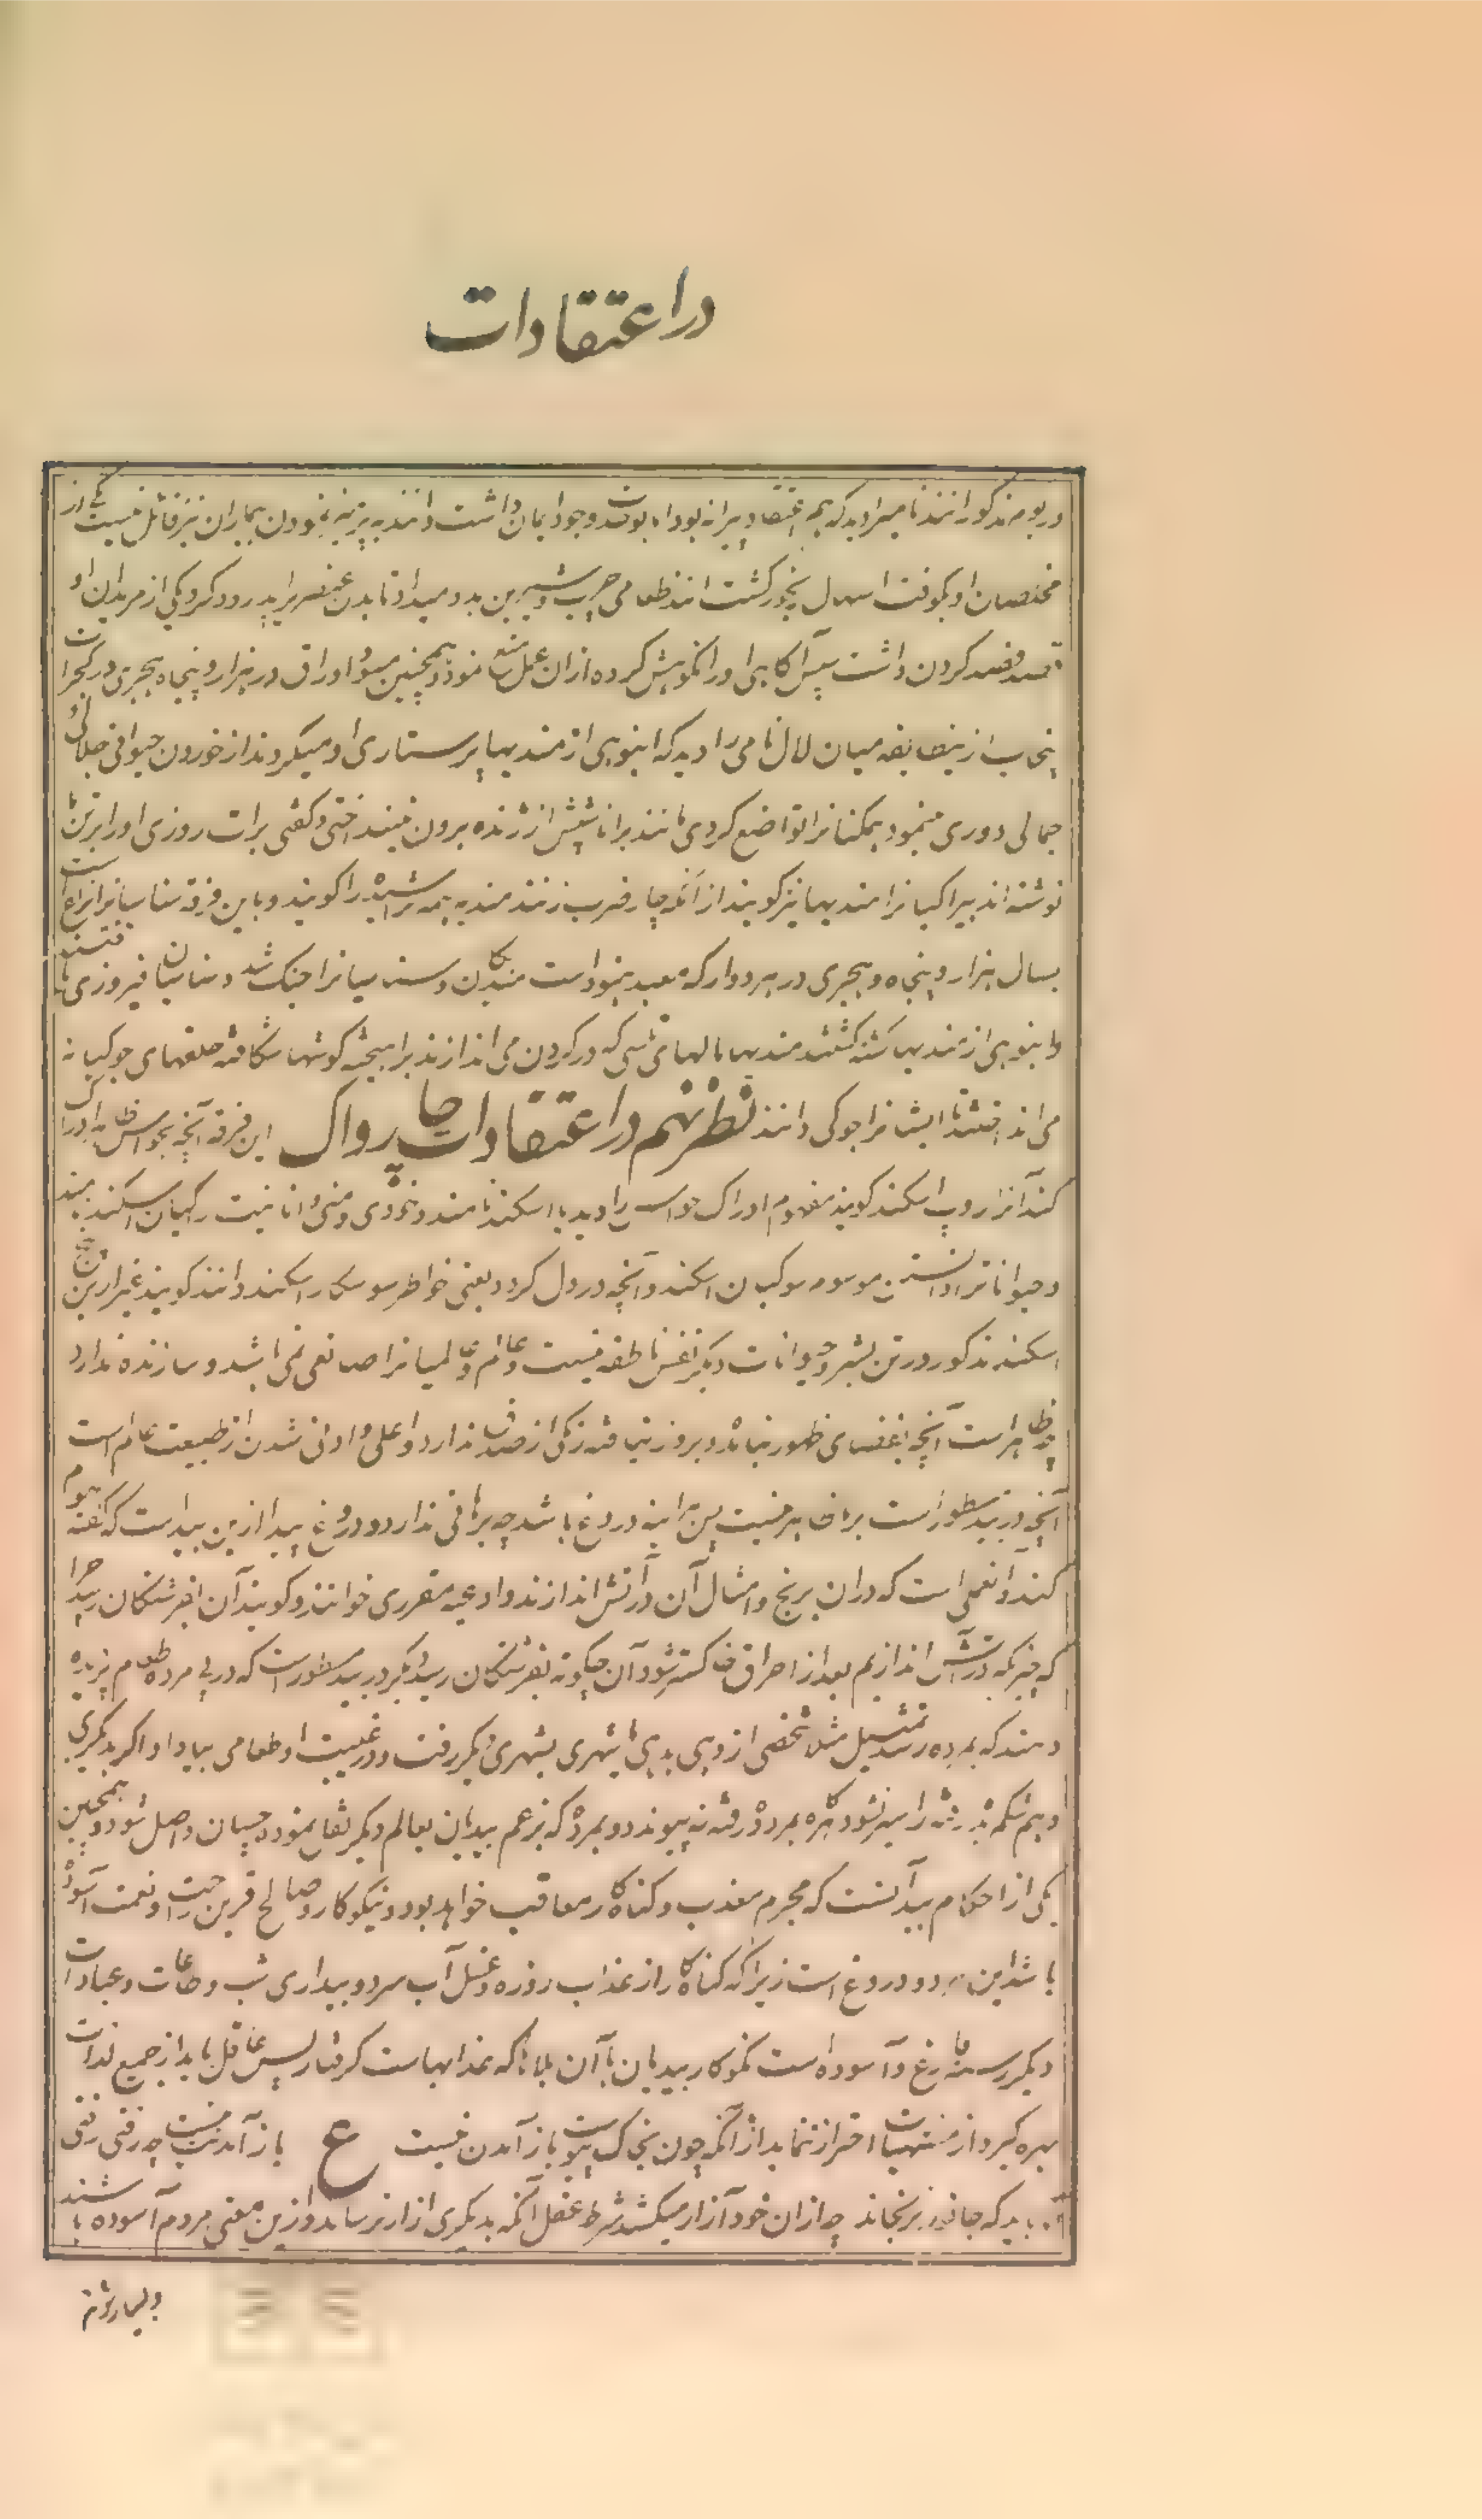 در اعتقادات
در بومذکور انند نامیرا دید که هم اعتقاد پیرانه بود او بوحدت وجود ایمان داشت و انند به پرهیز نمودن بیماران نیز قائل نیست یکی از
مختصان او بکوفت اسهال رنجور کشت انند طعامی چرب و شیرین بدو میداد تا بدن عنصری را پدرود کرد و یکی از مریدان او
قصد فصد کردن داشت پس آکاهی او را نکوهش کرده از ان عمل مانع نمود و همچنین مسود اوراق در هزار و پنجاه هجری در کجرات
پنجاب ازینطایفه میان لال نامی را دید که انبوهی از مندیها پرستاری او میکردند از خوردن حیوانی جلالی و
جمالی دوری مینمود همکنانرا تواضع کردی مانند برانا شپش از ژنده برون نیند اختی و کفتی برات روزی او را برین
نوشته اند بیراکیانرا مندیها نیز کویند از آنکه چار ضرب زنند مندیه همه تراشیده را کویند و با این فرقه سناسیانرا نزاع است
بسال هزار و پنجاه و هجری در هردوار که معبد هنود است مندیکان و سناسیانرا جنک شد و سناسیان فیروزی یافتند
و انبوهی از مندیها کشته کشتند مندیها مالهای تلسی که در کردن می اندازند برا همیخته کوشها شکافته حلقهای جوکیانه
می انداختند تا ایشانرا جوکی دانند نظر نهم در اعتقادات چارواک این فرقه آنچه بحواس ظاهر ادراک
کند آنرا روپ اسکند کویند مفهوم ادراک حواس را وید یا اسکند نامند و خودی و منی و انانیت را کیان اسکند بینند
و حیوانات را دانستن موسوم سوکیان اسکند و آنچه در دل کردد یعنی خواطر سوسکار اسکند دانند کویند غیر ازین پنج
اسکند مذکور در تن بشر و حیوانات دیکر نفس ناطقه نیست و عالم و عالمیانرا صانعی نمی باشد و سازنده ندارد
چه ظاهر است آنچه بفضای ظهور نیامده و بروز نیافته رنکی از صدق ندارد و اعلی و ادنی شدن از طبیعت عالم است
آنچه در بید مسطور است برما ظاهر نیست پس هر آینه دروغ باشد چه برهانی ندارد و دروغ بید ازین پیداست که کفته هوم
کند و آن عملی است که در ان برنج و امثال آن در آتش اندازند و ادعیه مقرری خوانند و کویند آن بفرشتکان رسید چرا
که چیزیکه در آتش اندازیم بعد از احراق خاکستر شود آن چکونه بفرشتکان رسد دیکر در بید مسطور است که در پی مرده طعام پزیده
دهند که بمرده رسد تمثیل مثلا شخصی از دهی بدهی یا شهری بشهری دیکر رفت و در غیبت او طعامی بیاد او اکر بدیکری
دهیم شکم بده رفته را سیر نشود بهره بمردۀ رفته نه پیوندد و بمرده که بزعم بیدیان بعالم دیکر نقل نموده چسان واصل شود و همچنین
یکی از احکام بید آنست که مجرم معذب و کناه کار معاقب خواهد بود و نیکوکار و صالح قرین راحت و نعمت آسوده
باشد این هر دو دروغ است زیرا که کناه کار از عذاب روزه و غسل آب سرد و بیداری شب و طاعات و عبادات
دیکر رسته فارغ و آسوده است نکوکار بیدیان با آن بلاها که عذابهاست کرفتار پس عاقل باید از جمیع لذات
بهره کیرد از مشتهیات احتراز ننماید از آنکه چون بخاک پیوست باز آمدن نیست ع باز آمدنت نیست چو رفتی رفتی
باید که جانور نرنجاند چه از ان خود آزار میکشد شرط عقل آنکه بدیکری ازار نرساند و ازین معنی مردم آسوده باشند